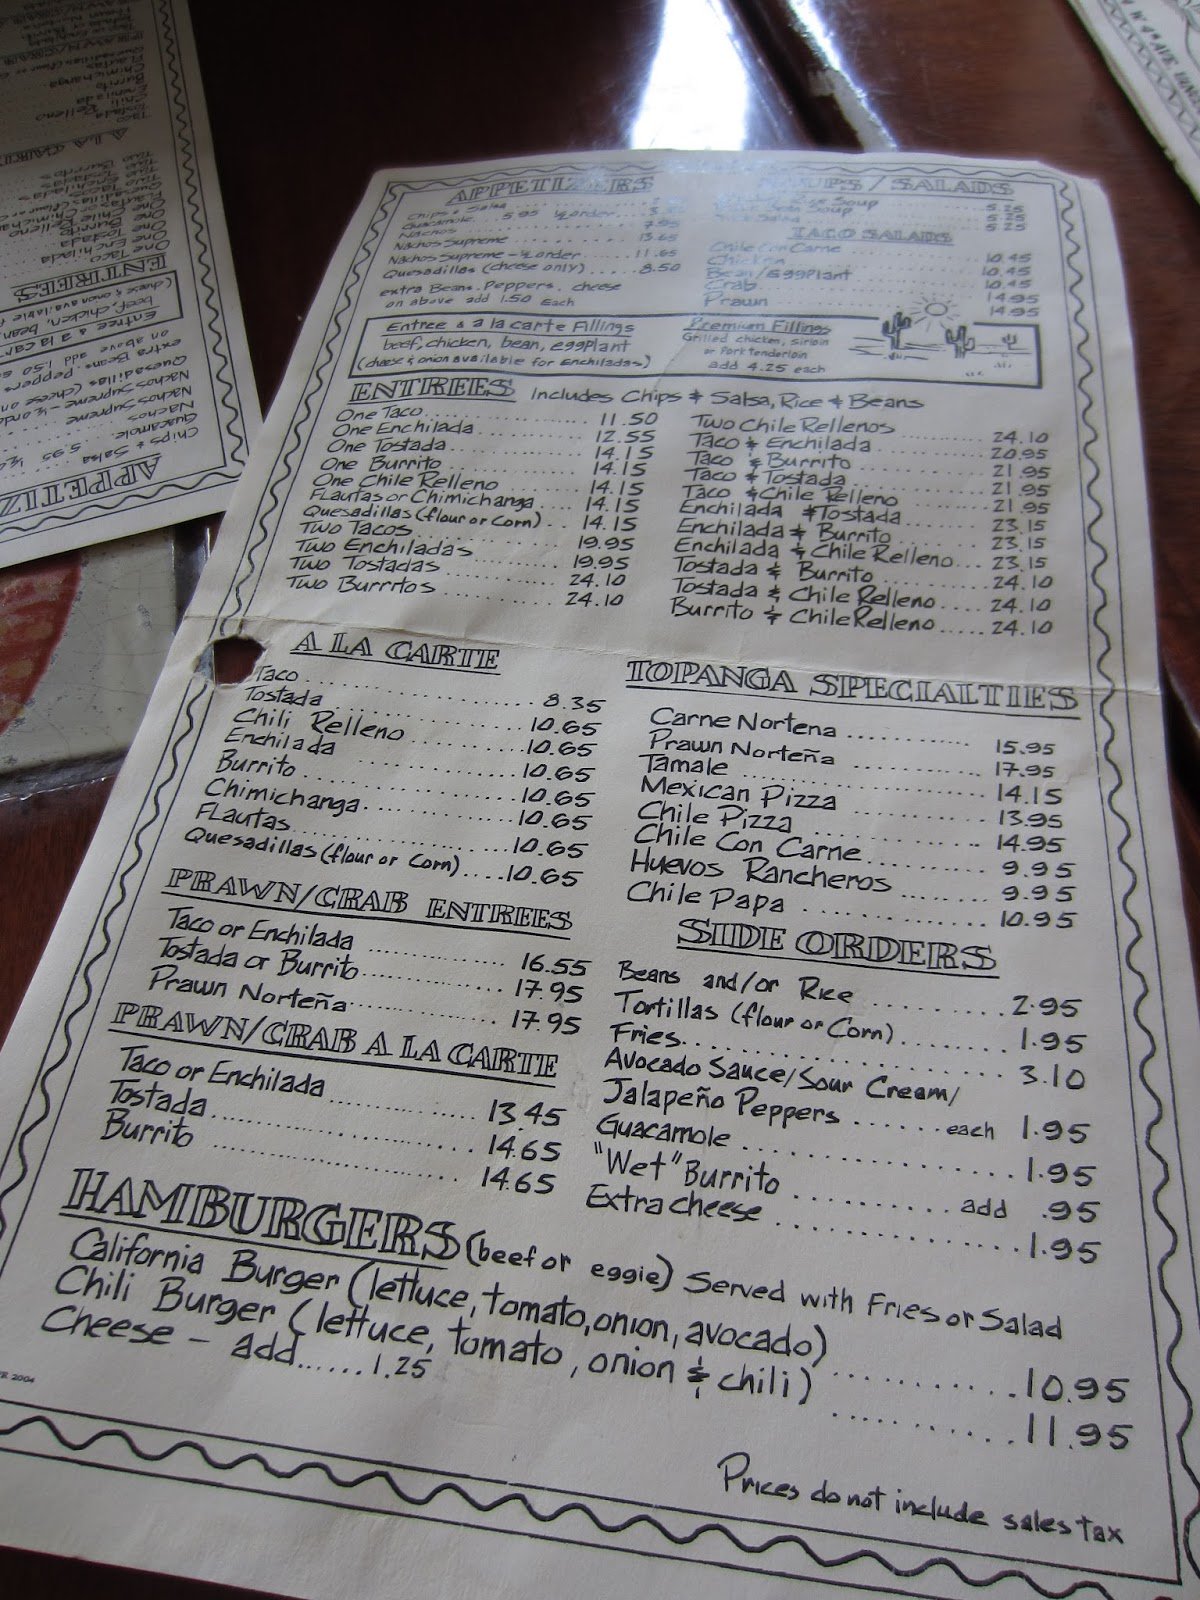 APPETIZERS
Chips & Salsa
Guacamole 5.95 ½ order
Nachos 7.95
Nachos Supreme 13.65
Nachos Supreme - ½ order 11.65
Quesadillas (cheese only) 8.50
extra Beans, Peppers, cheese
on above add 1.50 Each
SOUPS / SALADS
Soup 5.25
Soup 5.25
Salad 5.25
TACO SALADS
Chile Con Carne 10.45
Chicken 10.45
Bean/Eggplant 10.45
Crab 14.95
Prawn 14.95
Entree & a la carte Fillings
beef, chicken, bean, eggplant
(cheese & onion available for Enchiladas)
Premium Fillings
Grilled chicken, sirloin
or Pork tenderloin
add 4.25 each
ENTREES Includes Chips & Salsa, Rice & Beans
One Taco 11.50
One Enchilada 12.55
One Tostada 14.15
One Burrito 14.15
One Chile Relleno 14.15
Flautas or Chimichanga 14.15
Quesadillas (flour or Corn) 14.15
Two Tacos 19.95
Two Enchiladas 19.95
Two Tostadas 24.10
Two Burritos 24.10
Two Chile Rellenos 24.10
Taco & Enchilada 20.95
Taco & Burrito 21.95
Taco & Tostada 21.95
Taco & Chile Relleno 21.95
Enchilada & Tostada 23.15
Enchilada & Burrito 23.15
Enchilada & Chile Relleno 23.15
Tostada & Burrito 24.10
Tostada & Chile Relleno 24.10
Burrito & Chile Relleno 24.10
A LA CARTE
Taco 8.35
Tostada 10.65
Chili Relleno 10.65
Enchilada 10.65
Burrito 10.65
Chimichanga 10.65
Flautas 10.65
Quesadillas (flour or Corn) 10.65
PRAWN/CRAB ENTREES
Taco or Enchilada 16.55
Tostada or Burrito 17.95
Prawn Norteña 17.95
PRAWN/CRAB A LA CARTE
Taco or Enchilada 13.45
Tostada 14.65
Burrito 14.65
TOPANGA SPECIALTIES
Carne Nortena 15.95
Prawn Norteña 17.95
Tamale 14.15
Mexican Pizza 13.95
Chile Pizza 14.95
Chile Con Carne 9.95
Huevos Rancheros 9.95
Chile Papa 10.95
SIDE ORDERS
Beans and/or Rice 2.95
Tortillas (flour or Corn) 1.95
Fries 3.10
Avocado Sauce/Sour Cream/
Jalapeño Peppers each 1.95
Guacamole 1.95
"Wet" Burrito add .95
Extra cheese 1.95
HAMBURGERS (beef or eggie) Served with Fries or Salad
California Burger (lettuce, tomato, onion, avocado) 10.95
Chili Burger (lettuce, tomato, onion & chili) 11.95
Cheese - add 1.25
2004
Prices do not include sales tax